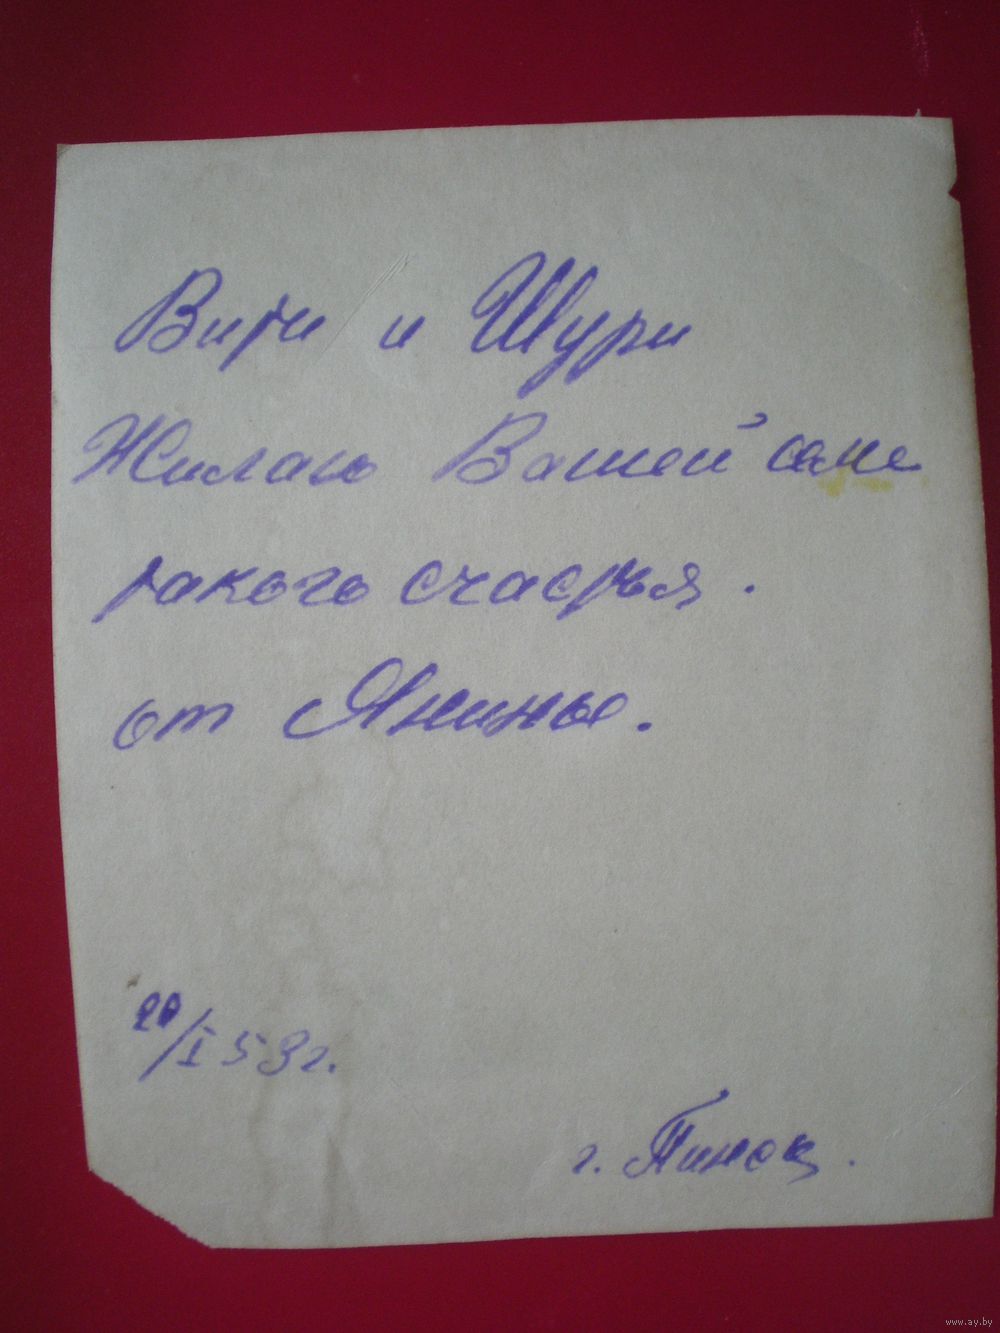 Вити и Шури
Жилаю Вашей семе
такого счастья.
от Янины.
20/I 53 г.
г. Пинск.
www.ay.by